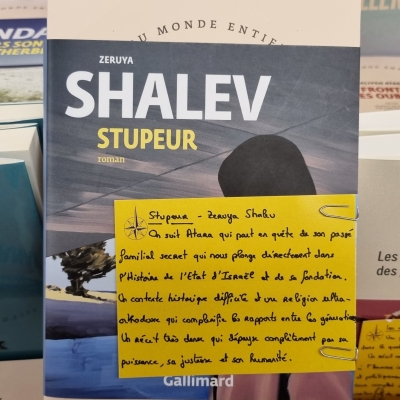 DU MONDE ENTIER
ZERUYA
SHALEV
STUPEUR
roman
Stupeur - Zeruya Shalev
On suit Atara qui part en quête de son passé
familial secret qui nous plonge directement dans
l'Histoire de l'Etat d'Israël et de sa fondation.
Un contexte historique difficile et une religion ultra-
orthodoxe qui complexifie les rapports entre les générations
Un récit très dense qui dépasse complètement par sa
puissance, sa justesse et son humanité.
Gallimard
Les
des